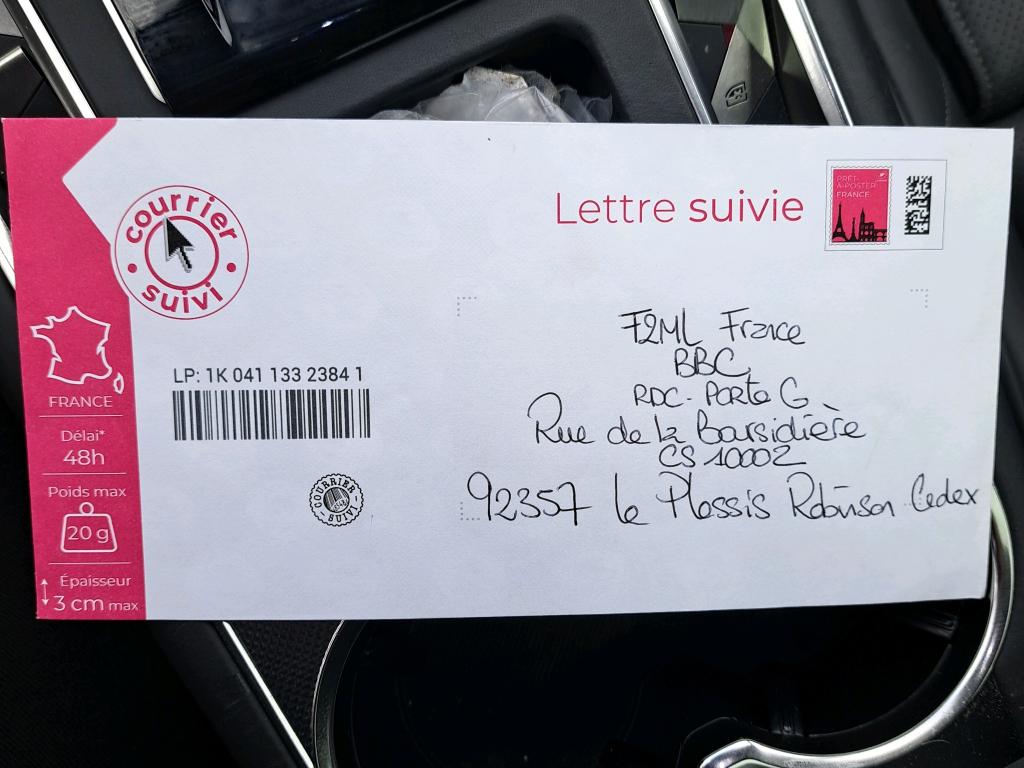 Lettre suivie
PRÊT-
À-POSTER
FRANCE
courrier
suivi
FRANCE
Délai*
48h
Poids max
20 g
Épaisseur
3 cm max
LP: 1K 041 133 2384 1
COURRIER
SUIVI
F2ML France
BBC
RDC - Porte G
Rue de la Boursidière
CS 10002
92357 le Plessis Robinson Cedex